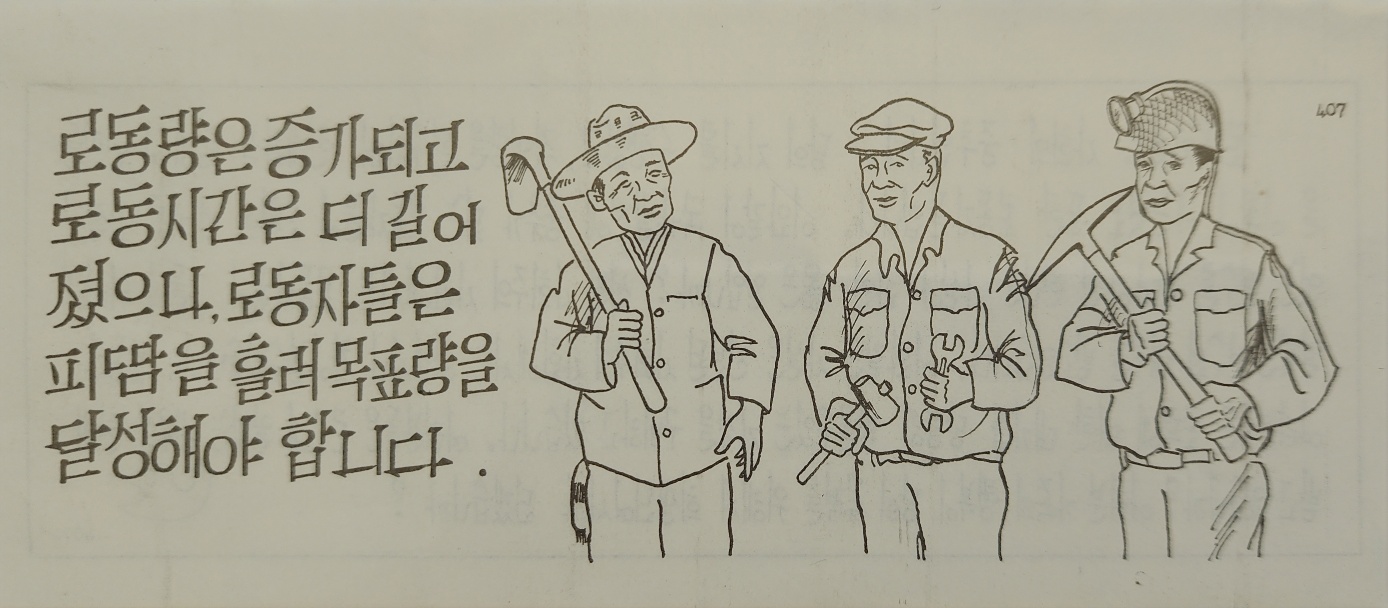 로동량은 증가되고
로동시간은 더 길어
졌으나, 로동자들은
피땀을 흘려 목표량을
달성해야 합니다.
407